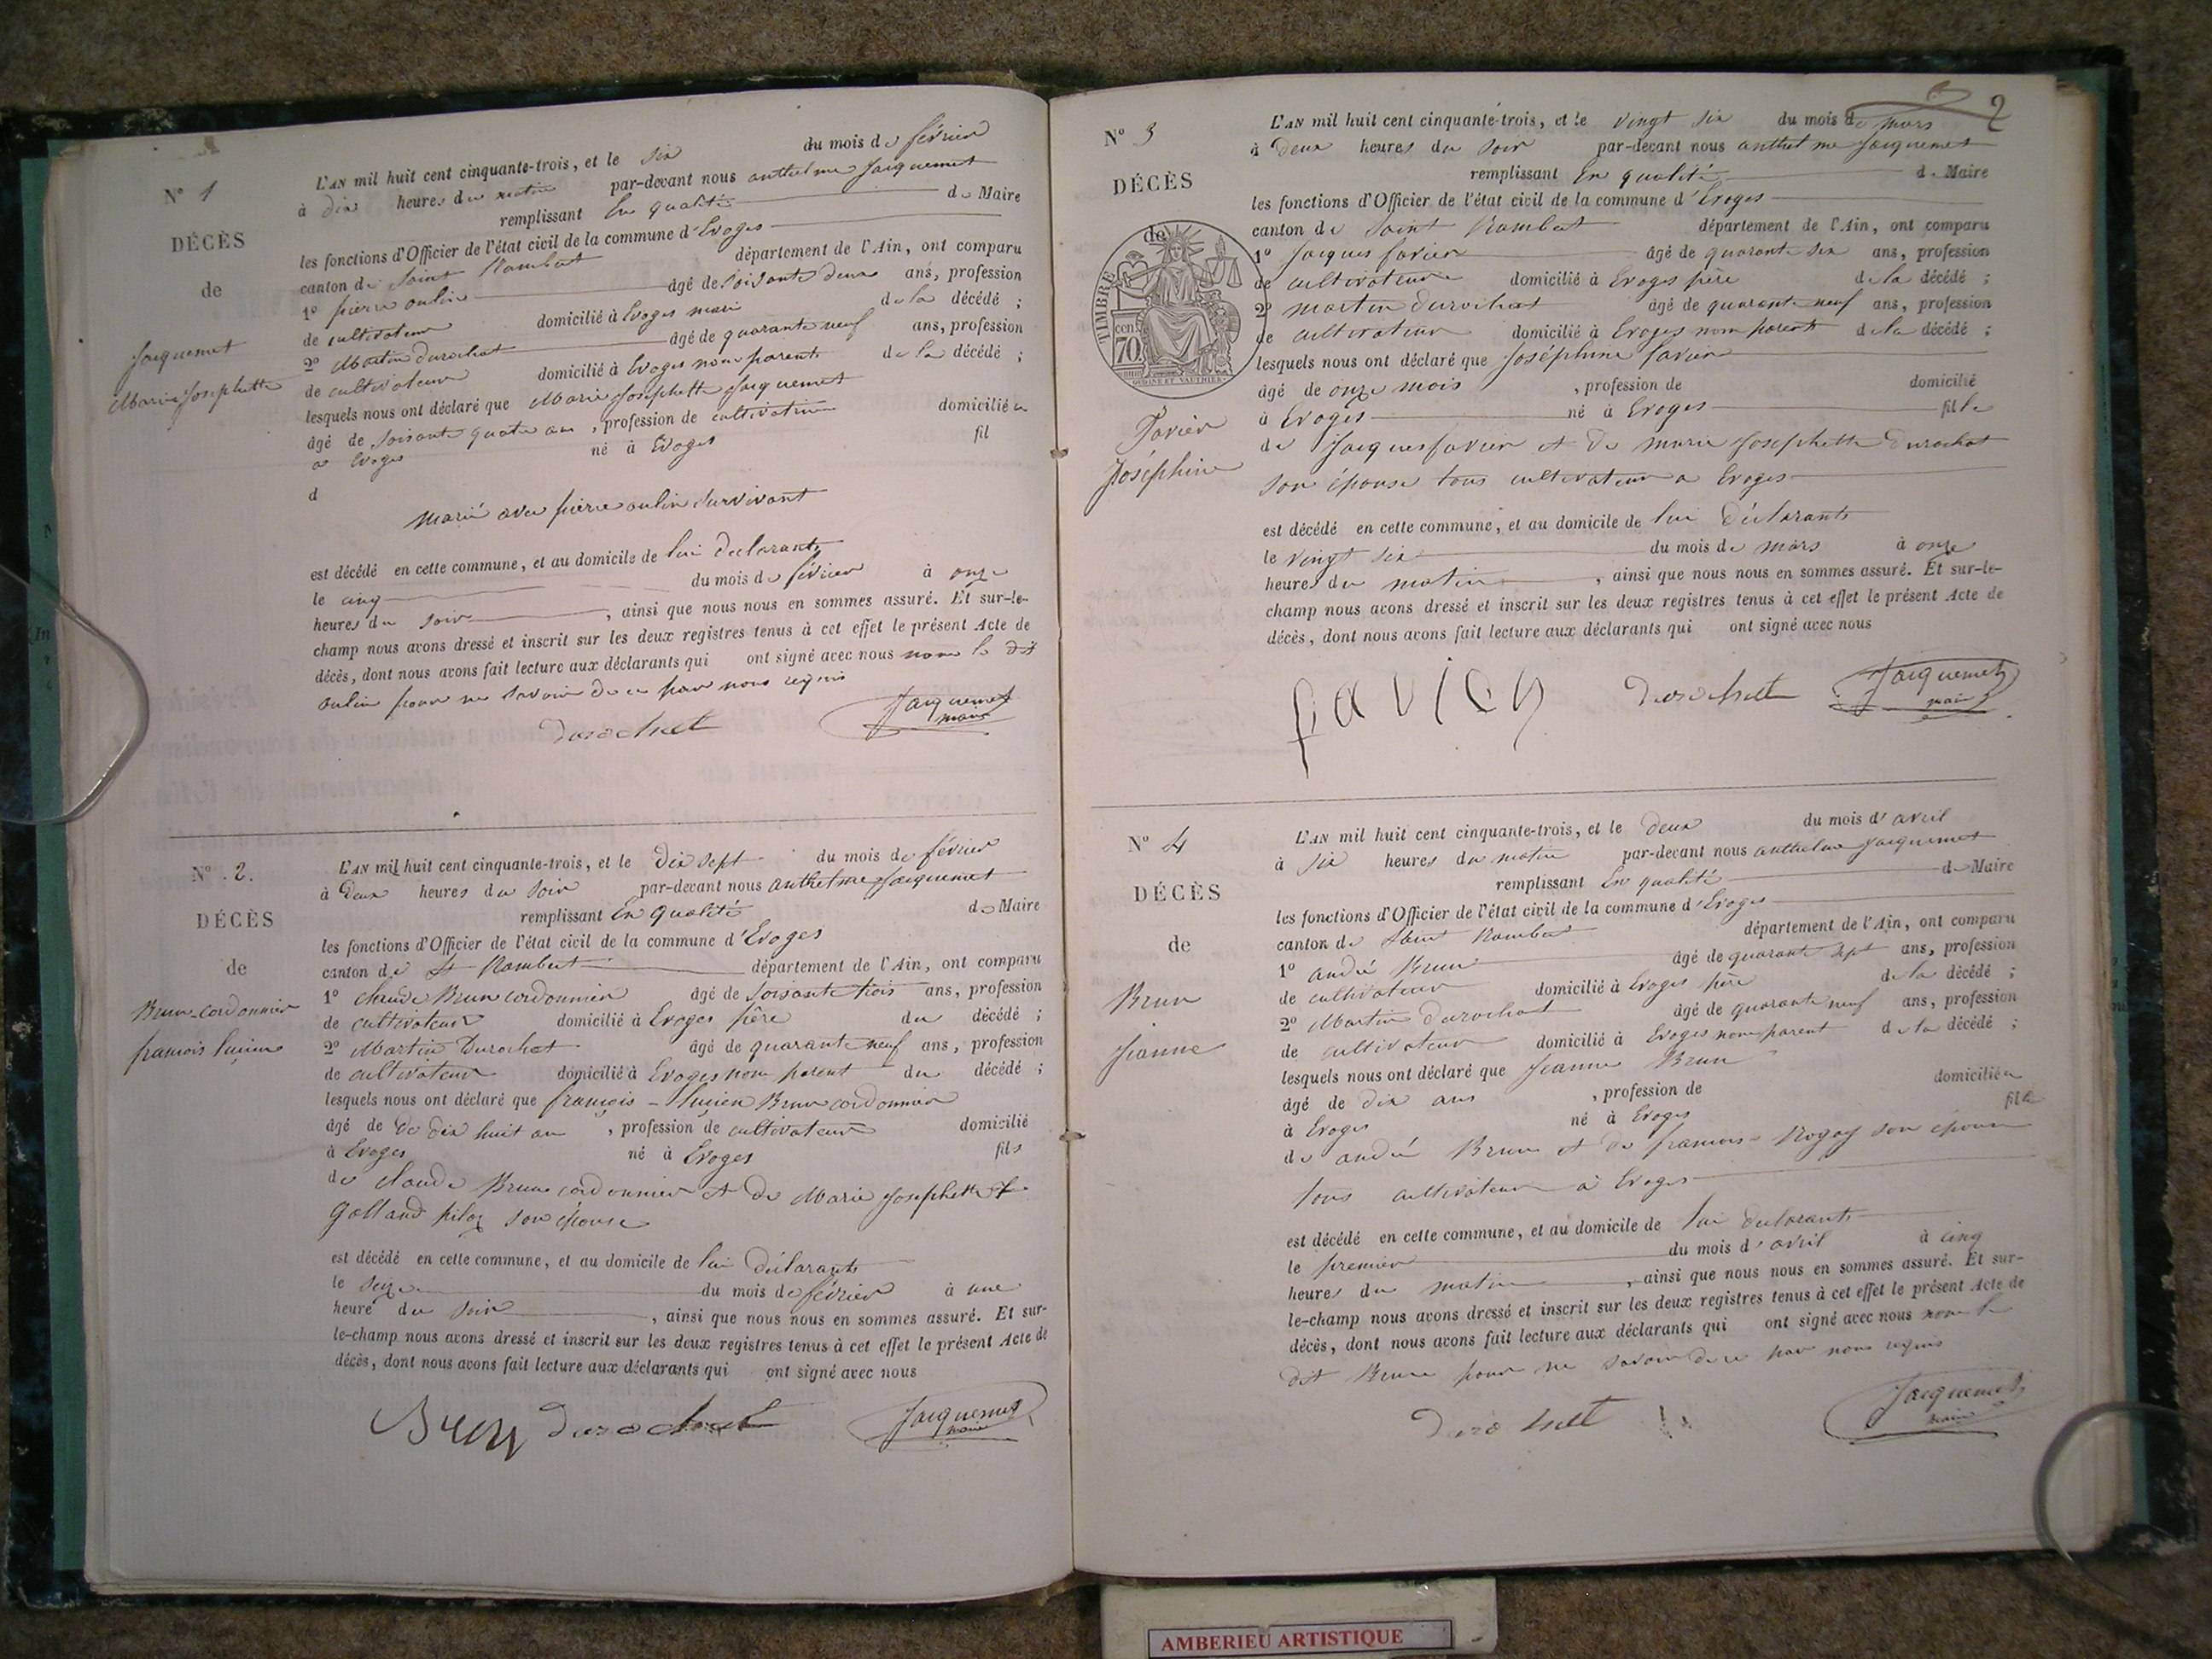 N° 1
DÉCÈS
de
Jacquemet
Marie Josephette
L'AN mil huit cent cinquante-trois, et le six du mois de février
à dix heures du matin par-devant nous anthelme Jacquemet
remplissant En qualité de Maire
les fonctions d'Officier de l'état civil de la commune d'Evoges
canton de Saint Rambert département de l'Ain, ont comparu
1° pierre oulin âgé de soisante deux ans, profession
de cultivateur domicilié à Evoges mari de la décédé ;
2° Martin durochat âgé de quarante neuf ans, profession
de cultivateur domicilié à Evoges non parent de la décédé ;
lesquels nous ont déclaré que Marie Josephette Jacquemet
âgé de soisante quatre ans, profession de cultivatrice domicilié a
a Evoges né à Evoges fil
d
marié avec pierre oulin survivant
est décédé en cette commune, et au domicile de lui declarant
le cinq du mois de février à onze
heures du soir, ainsi que nous nous en sommes assuré. Et sur-le-
champ nous avons dressé et inscrit sur les deux registres tenus à cet effet le présent Acte de
décès, dont nous avons fait lecture aux déclarants qui ont signé avec nous non le dit
oulin pour ne savoir de ce par nous requis
durochat Jacquemet
maire
N° 2.
DÉCÈS
de
Brun-cordonnier
françois lucien
L'AN mil huit cent cinquante-trois, et le dix sept du mois de février
à deux heures du soir par-devant nous anthelme Jacquemet
remplissant En qualité de Maire
les fonctions d'Officier de l'état civil de la commune d'Evoges
canton de St Rambert département de l'Ain, ont comparu
1° claude Brun cordonnier âgé de soisante trois ans, profession
de cultivateur domicilié à Evoges père du décédé ;
2° Martin Durochat âgé de quarante neuf ans, profession
de cultivateur domicilié à Evoges non parent du décédé ;
lesquels nous ont déclaré que françois - lucien Brun cordonnier
âgé de de dix huit an, profession de cultivateur domicilié
à Evoges né à Evoges fils
de claude Brun cordonnier et de Marie Josephette
Golland pilaz son épouse
est décédé en cette commune, et au domicile de lui déclarant
le seize du mois de février à une
heure du soir, ainsi que nous nous en sommes assuré. Et sur-
le-champ nous avons dressé et inscrit sur les deux registres tenus à cet effet le présent Acte de
décès, dont nous avons fait lecture aux déclarants qui ont signé avec nous
Brun durochat Jacquemet
maire
2
N° 3
DÉCÈS
de
TIMBRE
cent.
70
OUDINÉ ET VAUTHIER
Favier
Joséphine
L'AN mil huit cent cinquante-trois, et le vingt six du mois de mars
à deux heures du soir par-devant nous anthelme Jacquemet
remplissant En qualité de Maire
les fonctions d'Officier de l'état civil de la commune d'Evoges
canton de Saint Rambert département de l'Ain, ont comparu
1° Jacques favier âgé de quarante six ans, profession
de cultivateur domicilié à Evoges père de la décédé ;
2° martin durochat âgé de quarante neuf ans, profession
de cultivateur domicilié à Evoges non parent de la décédé ;
lesquels nous ont déclaré que Joséphine favier
âgé de onze mois, profession de domicilié
à Evoges né à Evoges fille
de Jacques favier et de marie Josephette durochat
son épouse tous cultivateur a Evoges
est décédé en cette commune, et au domicile de lui déclarant
le vingt six du mois de mars à onze
heures du matin, ainsi que nous nous en sommes assuré. Et sur-le-
champ nous avons dressé et inscrit sur les deux registres tenus à cet effet le présent Acte de
décès, dont nous avons fait lecture aux déclarants qui ont signé avec nous
favier durochat Jacquemet
maire
N° 4
DÉCÈS
de
Brun
Jeanne
L'AN mil huit cent cinquante-trois, et le deux du mois d'avril
à six heures du matin par-devant nous anthelme Jacquemet
remplissant En qualité de Maire
les fonctions d'Officier de l'état civil de la commune d'Evoges
canton de Saint Rambert département de l'Ain, ont comparu
1° andré Brun âgé de quarante sept ans, profession
de cultivateur domicilié à Evoges père de la décédé ;
2° Martin durochat âgé de quarante neuf ans, profession
de cultivateur domicilié à Evoges non parent de la décédé ;
lesquels nous ont déclaré que Jeanne Brun
âgé de dix ans, profession de domicilié a
à Evoges né à Evoges fille
de andré Brun et de françoise Rogay son épouse
tous cultivateur à Evoges
est décédé en cette commune, et au domicile de lui declarant
le premier du mois d'avril à cinq
heures du matin, ainsi que nous nous en sommes assuré. Et sur-
le-champ nous avons dressé et inscrit sur les deux registres tenus à cet effet le présent Acte de
décès, dont nous avons fait lecture aux déclarants qui ont signé avec nous non le
dit Brun pour ne savoir de ce par nous requis
durochat Jacquemet
maire
AMBERIEU ARTISTIQUE